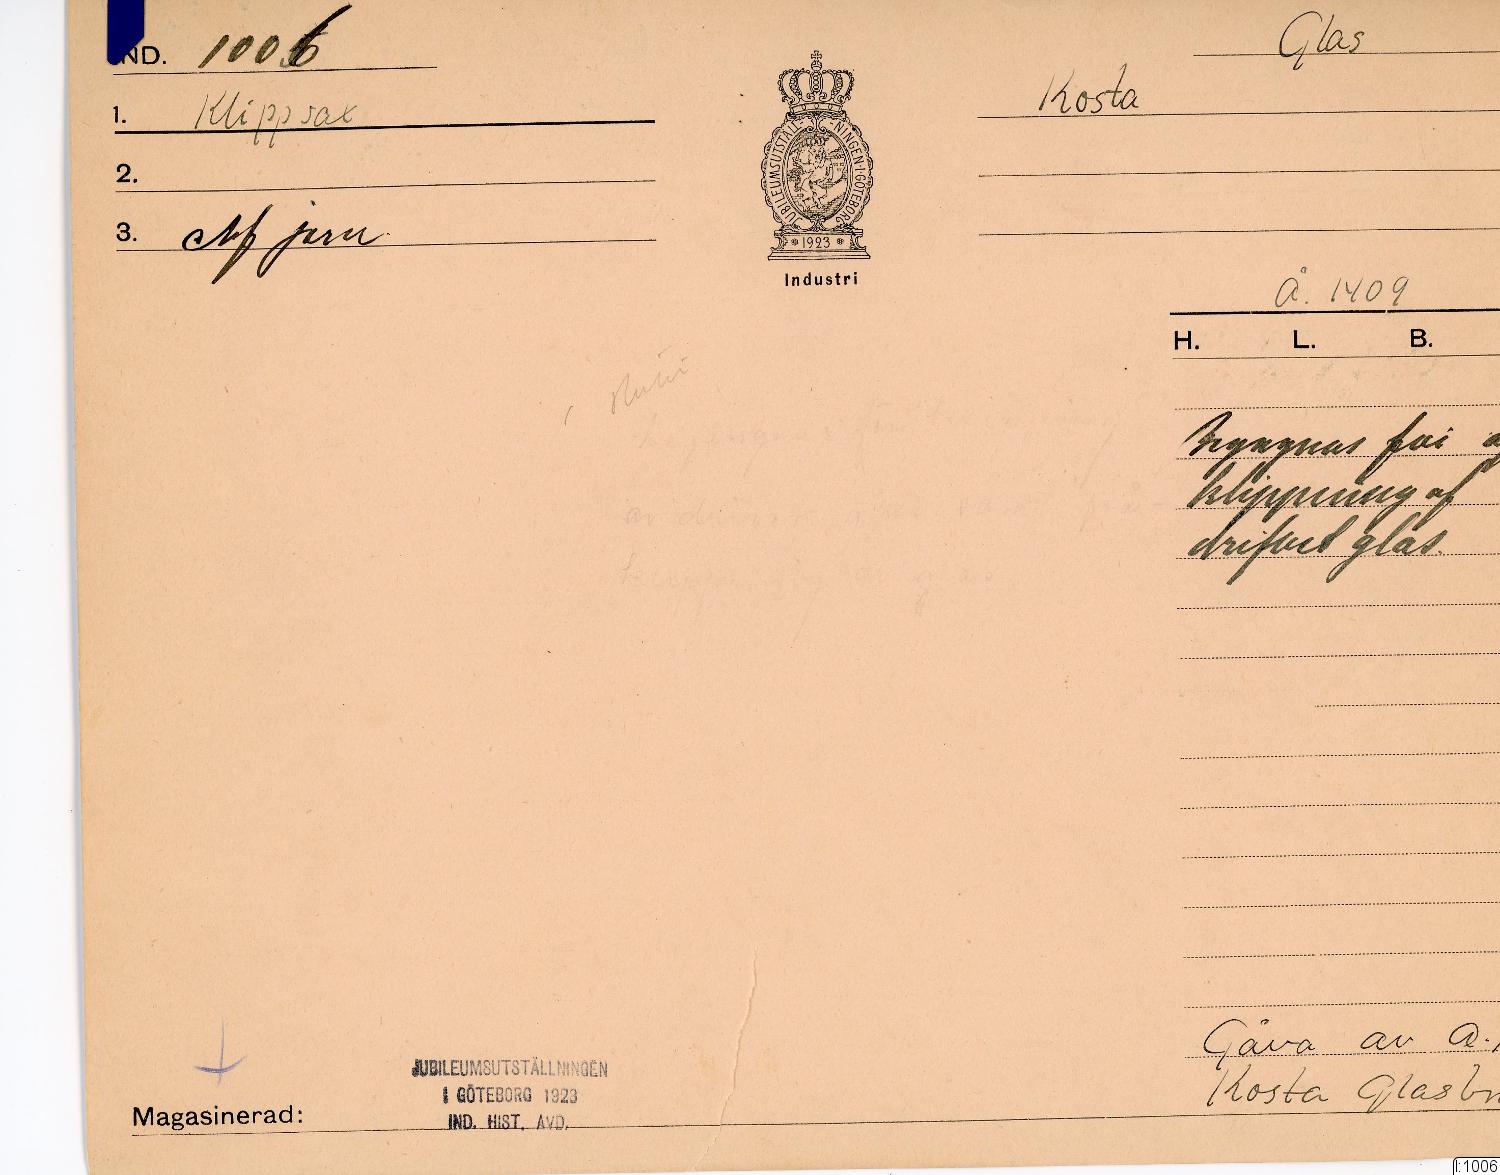 IND. 1006
Glas
1. Klippsax
Kosta
2.
3. Af jern
JUBILEUMSUTSTÄLLNINGEN·I·GÖTEBORG
1923
Industri
Å. 1409
H. L. B.
Begagnas för a
klippning af
drifvet glas.
Gåva av A.
Kosta Glasbr
JUBILEUMSUTSTÄLLNINGEN
I GÖTEBORG 1923
IND. HIST. AVD.
Magasinerad:
I:1006